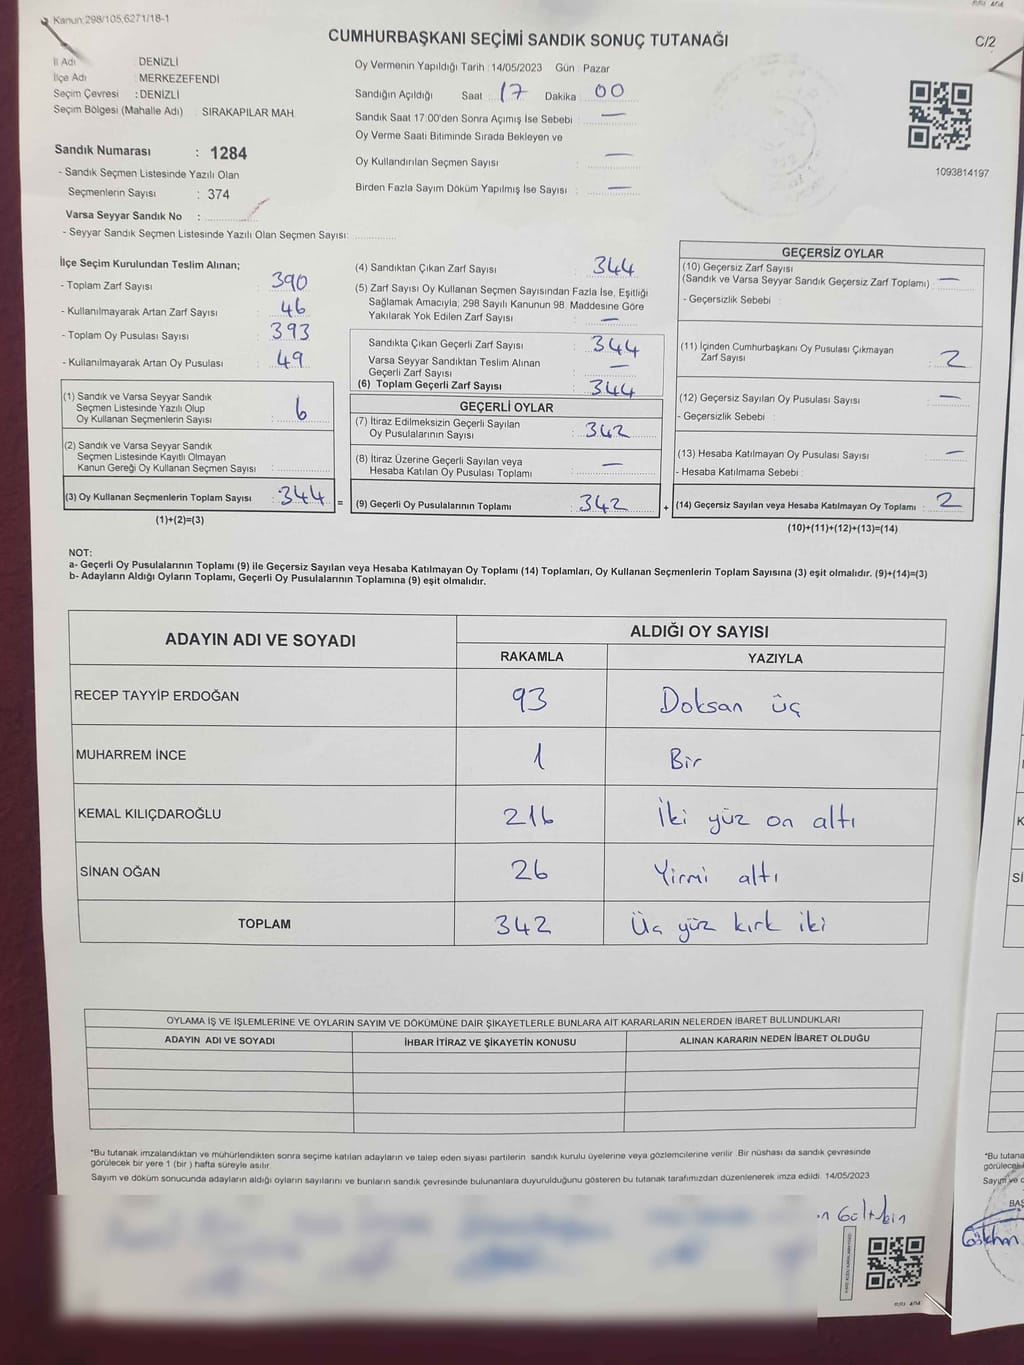 Kanun:298/105;6271/18-1
CUMHURBAŞKANI SEÇİMİ SANDIK SONUÇ TUTANAĞI
C/2
İl Adı : DENİZLİ
İlçe Adı : MERKEZEFENDİ
Seçim Çevresi : DENİZLİ
Seçim Bölgesi (Mahalle Adı) : SIRAKAPILAR MAH.
Sandık Numarası : 1284
- Sandık Seçmen Listesinde Yazılı Olan
Seçmenlerin Sayısı : 374
Varsa Seyyar Sandık No :
- Seyyar Sandık Seçmen Listesinde Yazılı Olan Seçmen Sayısı:
Oy Vermenin Yapıldığı Tarih :14/05/2023 Gün : Pazar
Sandığın Açıldığı Saat : 17 Dakika : 00
Sandık Saat 17.00'den Sonra Açımış İse Sebebi : —
Oy Verme Saati Bitiminde Sırada Bekleyen ve
Oy Kullandırılan Seçmen Sayısı : —
Birden Fazla Sayım Döküm Yapılmış İse Sayısı : —
1093814197
İlçe Seçim Kurulundan Teslim Alınan;
- Toplam Zarf Sayısı : 390
- Kullanılmayarak Artan Zarf Sayısı : 46
- Toplam Oy Pusulası Sayısı : 393
- Kullanılmayarak Artan Oy Pusulası : 49
(1) Sandık ve Varsa Seyyar Sandık
Seçmen Listesinde Yazılı Olup
Oy Kullanan Seçmenlerin Sayısı : 6
(2) Sandık ve Varsa Seyyar Sandık
Seçmen Listesinde Kayıtlı Olmayan
Kanun Gereği Oy Kullanan Seçmen Sayısı :
(3) Oy Kullanan Seçmenlerin Toplam Sayısı : 344 =
(1)+(2)=(3)
(4) Sandıktan Çıkan Zarf Sayısı : 344
(5) Zarf Sayısı Oy Kullanan Seçmen Sayısından Fazla İse, Eşitliği
Sağlamak Amacıyla; 298 Sayılı Kanunun 98. Maddesine Göre
Yakılarak Yok Edilen Zarf Sayısı : —
Sandıkta Çıkan Geçerli Zarf Sayısı : 344
Varsa Seyyar Sandıktan Teslim Alınan
Geçerli Zarf Sayısı : —
(6) Toplam Geçerli Zarf Sayısı : 344
GEÇERLİ OYLAR
(7) İtiraz Edilmeksizin Geçerli Sayılan
Oy Pusulalarının Sayısı : 342
(8) İtiraz Üzerine Geçerli Sayılan veya
Hesaba Katılan Oy Pusulası Toplamı : —
(9) Geçerli Oy Pusulalarının Toplamı : 342 +
GEÇERSİZ OYLAR
(10) Geçersiz Zarf Sayısı
(Sandık ve Varsa Seyyar Sandık Geçersiz Zarf Toplamı) : —
- Geçersizlik Sebebi :
(11) İçinden Cumhurbaşkanı Oy Pusulası Çıkmayan
Zarf Sayısı : 2
(12) Geçersiz Sayılan Oy Pusulası Sayısı : —
- Geçersizlik Sebebi :
(13) Hesaba Katılmayan Oy Pusulası Sayısı : —
- Hesaba Katılmama Sebebi :
(14) Geçersiz Sayılan veya Hesaba Katılmayan Oy Toplamı : 2
(10)+(11)+(12)+(13)=(14)
NOT:
a- Geçerli Oy Pusulalarının Toplamı (9) ile Geçersiz Sayılan veya Hesaba Katılmayan Oy Toplamı (14) Toplamları, Oy Kullanan Seçmenlerin Toplam Sayısına (3) eşit olmalıdır. (9)+(14)=(3)
b- Adayların Aldığı Oyların Toplamı, Geçerli Oy Pusulalarının Toplamına (9) eşit olmalıdır.
ADAYIN ADI VE SOYADI
ALDIĞI OY SAYISI
RAKAMLA YAZIYLA
RECEP TAYYİP ERDOĞAN 93 Doksan üç
MUHARREM İNCE 1 Bir
KEMAL KILIÇDAROĞLU 216 İki yüz on altı
SİNAN OĞAN 26 Yirmi altı
TOPLAM 342 Üç yüz kırk iki
OYLAMA İŞ VE İŞLEMLERİNE VE OYLARIN SAYIM VE DÖKÜMÜNE DAİR ŞİKAYETLERLE BUNLARA AİT KARARLARIN NELERDEN İBARET BULUNDUKLARI
ADAYIN ADI VE SOYADI İHBAR İTİRAZ VE ŞİKAYETİN KONUSU ALINAN KARARIN NEDEN İBARET OLDUĞU
*Bu tutanak imzalandıktan ve mühürlendikten sonra seçime katılan adayların ve talep eden siyasi partilerin sandık kurulu üyelerine veya gözlemcilerine verilir. Bir nüshası da sandık çevresinde
görülecek bir yere 1 (bir ) hafta süreyle asılır.
Sayım ve döküm sonucunda adayların aldığı oyların sayılarını ve bunların sandık çevresinde bulunanlara duyurulduğunu gösteren bu tutanak tarafımızdan düzenlenerek imza edildi. 14/05/2023
*Bu tutana
görülecek
Sayım ve
Gökhan